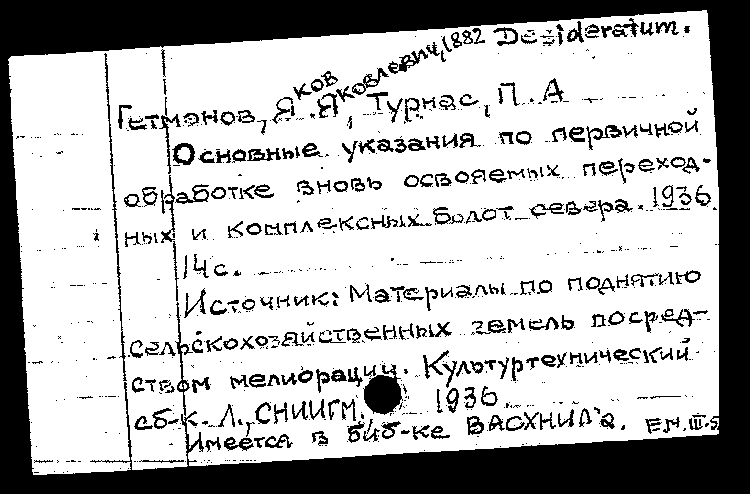 Desideratum.
Гетманов, Яков Яковлевич, 1882, Турнас, П. А
Основные указания по первичной
обработке вновь освояемых переход-
ных и комплексных болот севера. 1936
14 с.
Источник: Материалы по поднятию
сельскохозяйственных земель посред-
ством мелиорации. Культуртехнический
сб-к. Л., СНИИГМ. 1936.
Имеется в биб-ке ВАСХНИЛ'а. Е.М. III-5